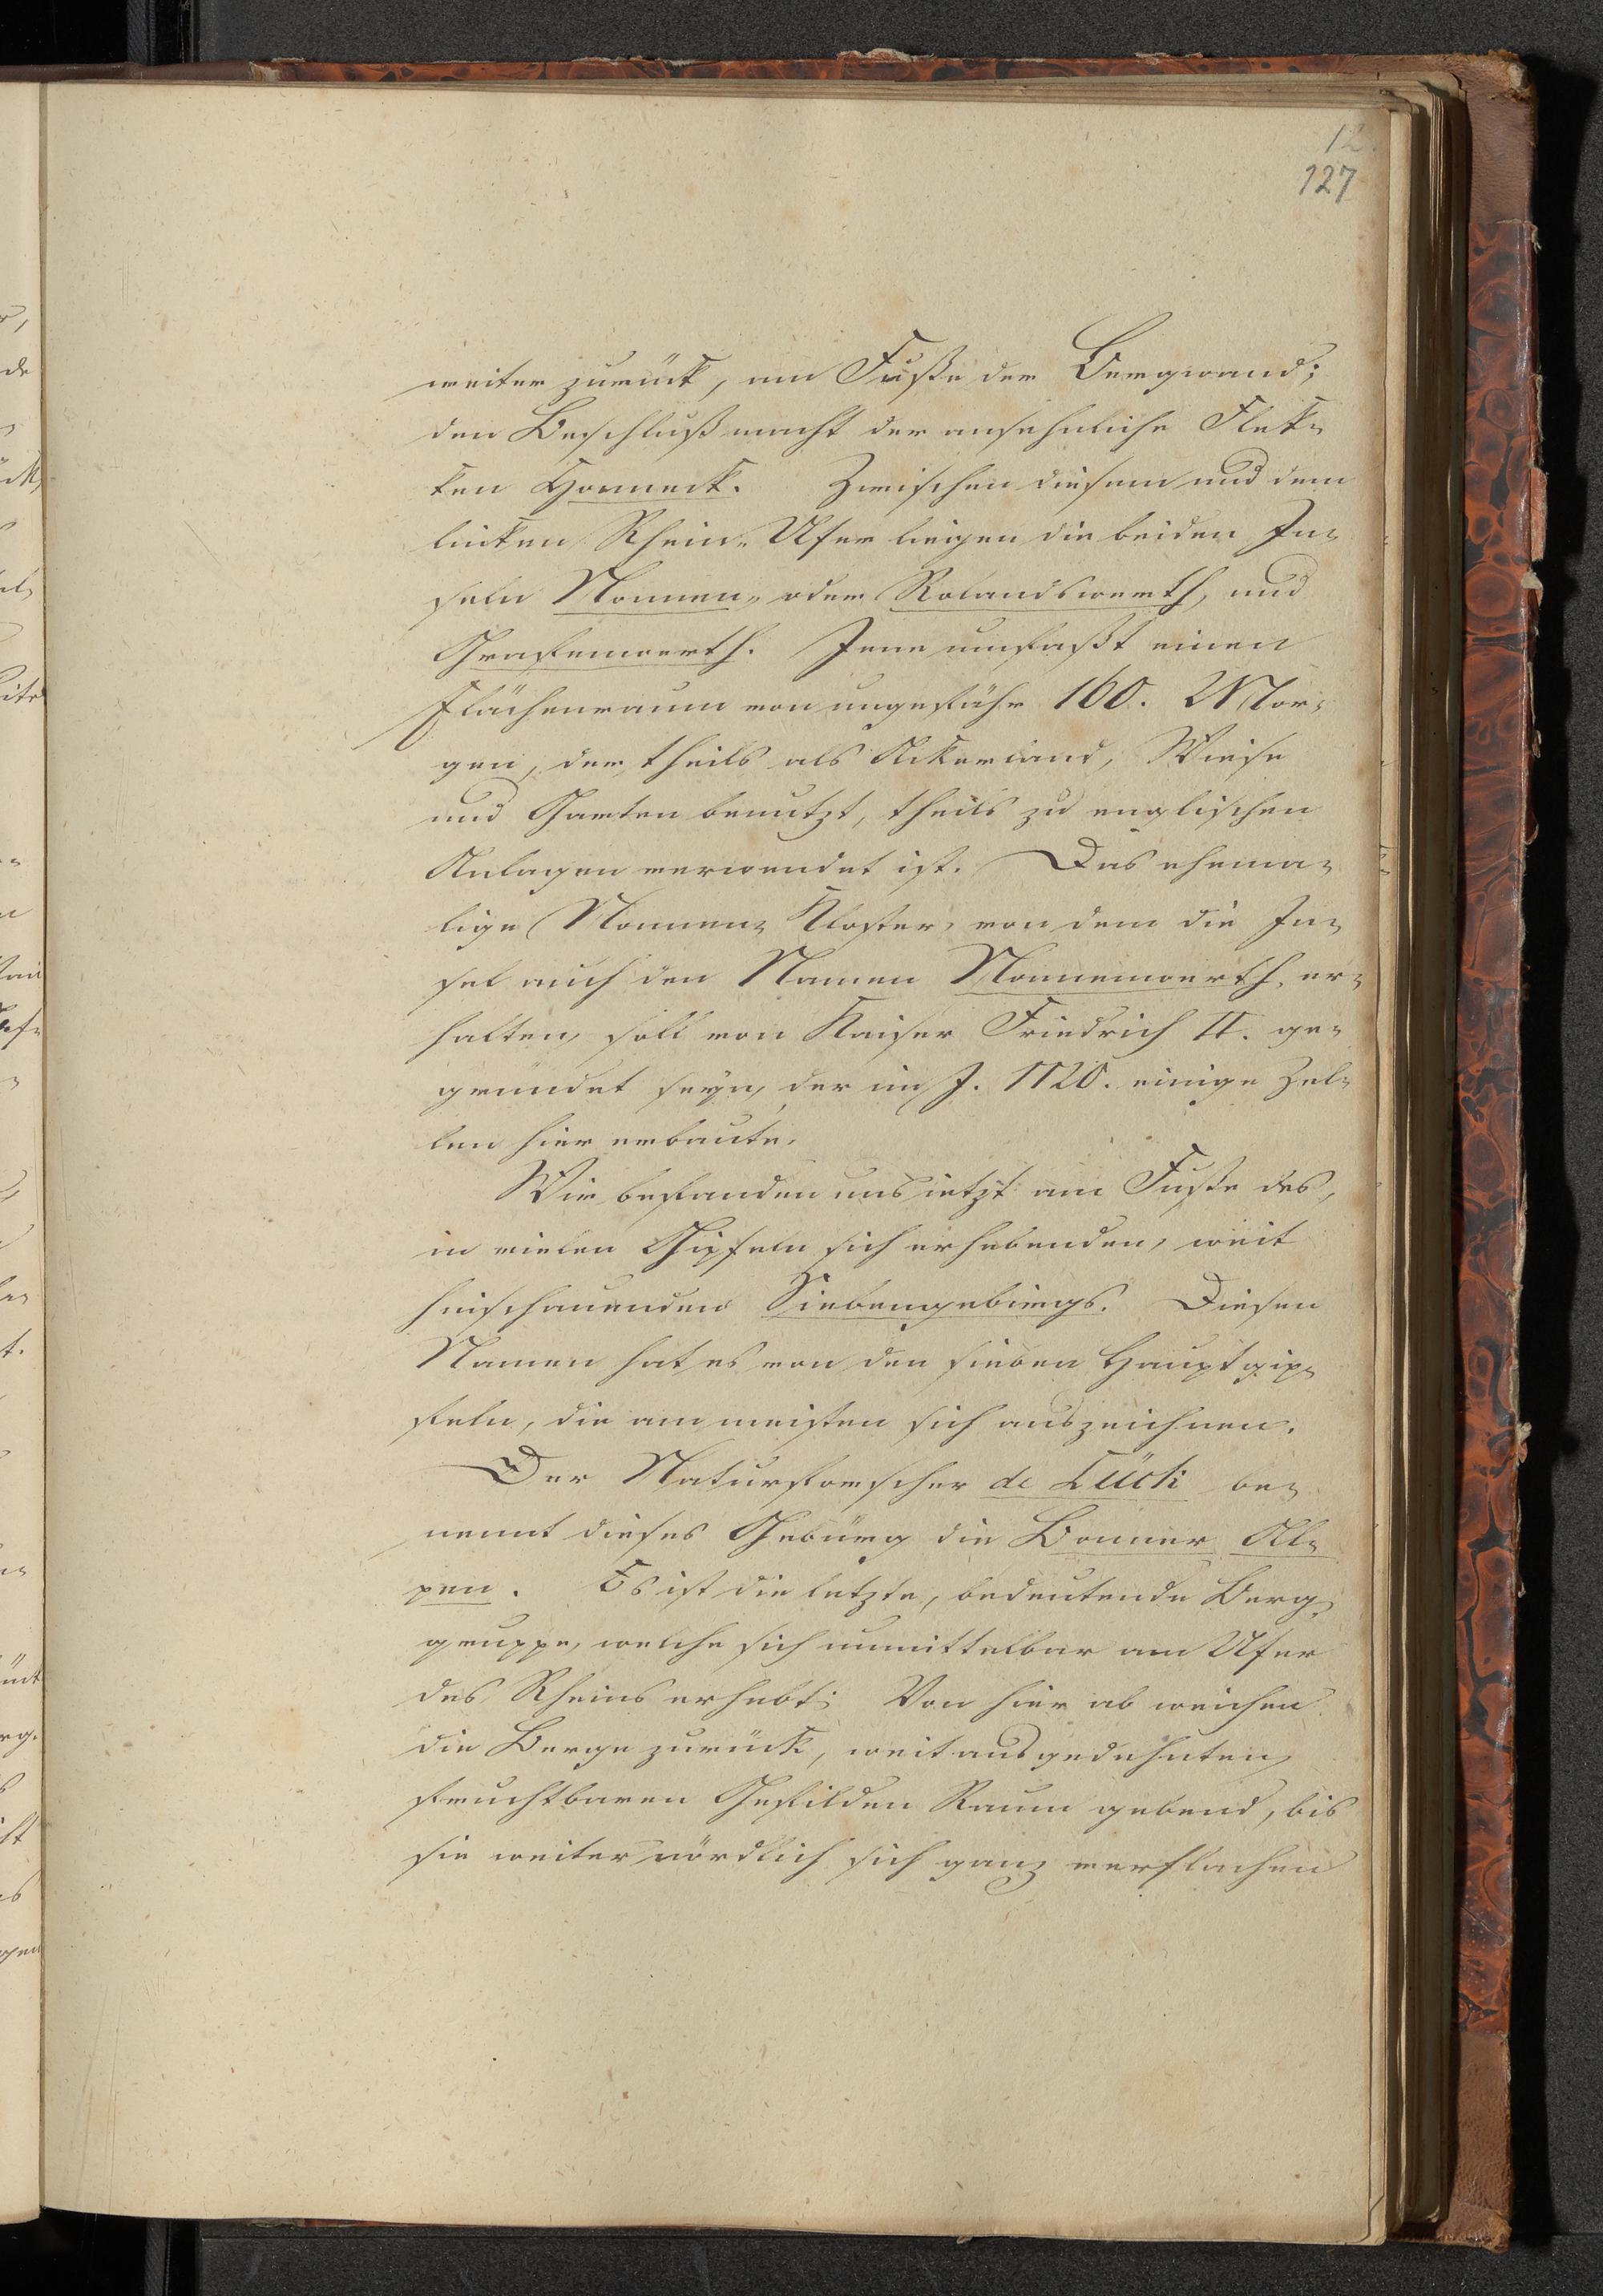 12.
127
weiter zurück, am Fuße der Bergwand;
den Beschluß macht der ansehnliche Flek-
ken Honneck. Zwischen diesem und dem
linken Rhein-Ufer liegen die beiden In-
seln Nonnen- oder Rolandswerth, und
Grafenwerth. Jene umfaßt einen
Flächenraum von ungefähr 160. Mor-
gen, der theils als Ackerland, Wiese
und Garten benutzt, theils zu englischen
Anlagen verwendet ist. Das ehema-
lige Nonnen-Kloster, von dem die In-
sel auch den Namen Nonnenwerth, er-
halten, soll von Kaiser Friedrich II. ge-
gründet seyn, der im J. 1120. einige Zel-
len hier erbaute.
Wir befanden uns ietzt am Fuße des,
in vielen Gipfeln sich erhebenden, weit
hinschauenden Siebengebirgs. Diesen
Namen hat es von den sieben Hauptgip-
feln, die am meisten sich auszeichnen.
Der Naturforscher de Lück be-
nennt dieses Gebürg die Bonner Al-
pen. Es ist die letzte, bedeutende Berg-
gruppe, welche sich unmittelbar am Ufer
des Rheins erhebt; Von hier ab weichen
die Berge zurück, weit ausgedehnten,
fruchtbaren Gefilden Raum gebend, bis
sie weiter nördlich sich ganz verflachen